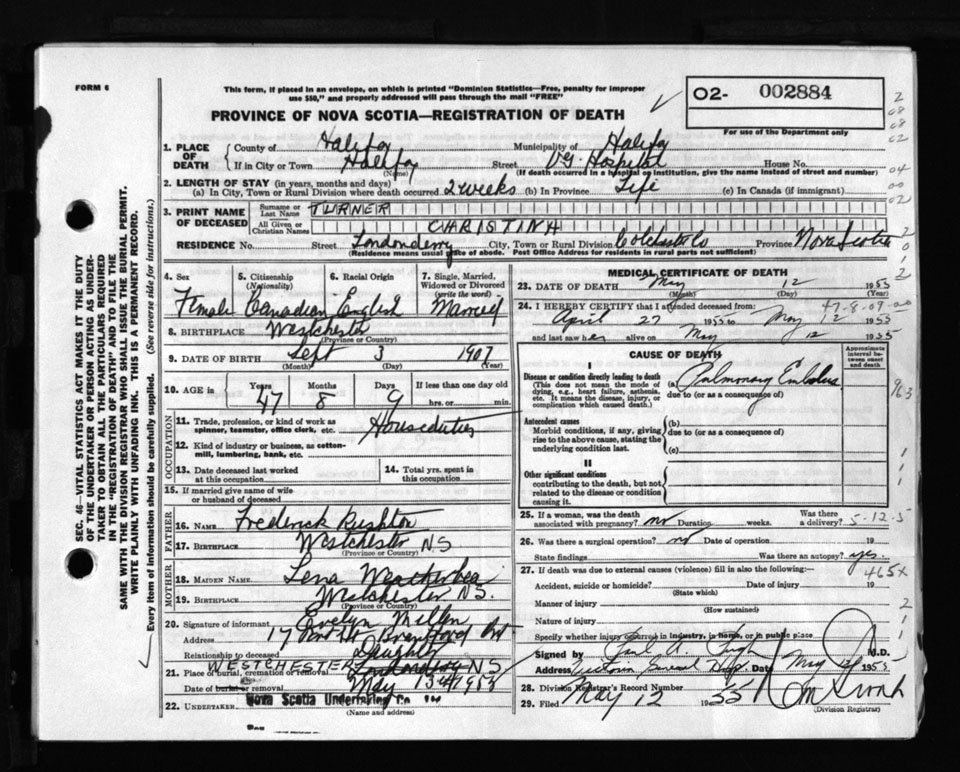 FORM 6
This form, if placed in an envelope, on which is printed "Dominion Statistics—Free, penalty for improper
use $50," and properly addressed will pass through the mail "FREE"
PROVINCE OF NOVA SCOTIA—REGISTRATION OF DEATH
O2- 002884
For use of the Department only
1. PLACE OF DEATH County of Halifax Municipality of Halifax
If in City or Town Halifax Street VG. Hospital House No.
(Name) (If death occurred in a hospital or institution, give the name instead of street and number)
2. LENGTH OF STAY (in years, months and days)
(a) In City, Town or Rural Division where death occurred 2 weeks (b) In Province Life (c) In Canada (if immigrant)
3. PRINT NAME OF DECEASED Surname or Last Name TURNER
All Given or Christian Names CHRISTINA
RESIDENCE No. Street Londonderry City, Town or Rural Division Colchester Co Province Nova Scotia
(Residence means usual place of abode. Post Office Address for residents in rural parts not sufficient)
4. Sex Female
5. Citizenship (Nationality) Canadian
6. Racial Origin English
7. Single, Married, Widowed or Divorced (write the word) Married
8. BIRTHPLACE Westchester
(Province or Country)
9. DATE OF BIRTH Sept 3 1907
(Month) (Day) (Year)
10. AGE in Years 47 Months 8 Days 9 If less than one day old
hrs. or min.
OCCUPATION
11. Trade, profession, or kind of work as
spinner, teamster, office clerk, etc. Houseduties
12. Kind of industry or business, as cotton-
mill, lumbering, bank, etc.
13. Date deceased last worked
at this occupation
14. Total yrs. spent in
this occupation
15. If married give name of wife
or husband of deceased
FATHER
16. NAME Frederick Rushton
17. BIRTHPLACE Westchester NS
(Province or Country)
MOTHER
18. MAIDEN NAME Lena Weatherbee
19. BIRTHPLACE Westchester NS.
(Province or Country)
20. Signature of informant Evelyn
Address 17 Brantford Ont
Relationship to deceased Daughter
21. Place of burial, cremation or removal WESTCHESTER NS
Date of burial or removal May 13th 1955
22. UNDERTAKER Nova Scotia Undertaking Co
(Name and address)
MEDICAL CERTIFICATE OF DEATH
23. DATE OF DEATH May 12 1955
(Month) (Day) (Year)
24. I HEREBY CERTIFY that I attended deceased from:
47-8-09-00
April 27 1955 to May 12 1955
and last saw her alive on May 12 1955
CAUSE OF DEATH
Approximate interval between onset and death
I
Disease or condition directly leading to death
(This does not mean the mode of
dying, e.g., heart failure, asthenia,
etc. It means the disease, injury, or
complication which caused death.)
(a) Pulmonary Embolus
due to (or as a consequence of)
Antecedent causes
Morbid conditions, if any, giving
rise to the above cause, stating the
underlying condition last.
(b)
due to (or as a consequence of)
(c)
II
Other significant conditions
contributing to the death, but not
related to the disease or condition
causing it.
25. If a woman, was the death
associated with pregnancy? no Duration weeks. Was there a delivery? 5-12-5
26. Was there a surgical operation? no Date of operation 19
State findings Was there an autopsy? yes.
27. If death was due to external causes (violence) fill in also the following:—
465X
Accident, suicide or homicide? Date of injury 19
(State which)
Manner of injury
(How sustained)
Nature of injury
Specify whether injury occurred in industry, in home, or in public place
Signed by M.D.
Address Victoria General Hosp. Date May 12 1955
28. Division Registrar's Record Number
29. Filed May 12 1955
(Division Registrar)
SEC. 46—VITAL STATISTICS ACT MAKES IT THE DUTY
OF THE UNDERTAKER OR PERSON ACTING AS UNDER-
TAKER TO OBTAIN ALL THE PARTICULARS REQUIRED
IN THE "REGISTRATION OF DEATH" AND TO FILE THE
SAME WITH THE DIVISION REGISTRAR WHO SHALL ISSUE THE BURIAL PERMIT.
WRITE PLAINLY WITH UNFADING INK. THIS IS A PERMANENT RECORD.
Every item of information should be carefully supplied. (See reverse side for instructions.)